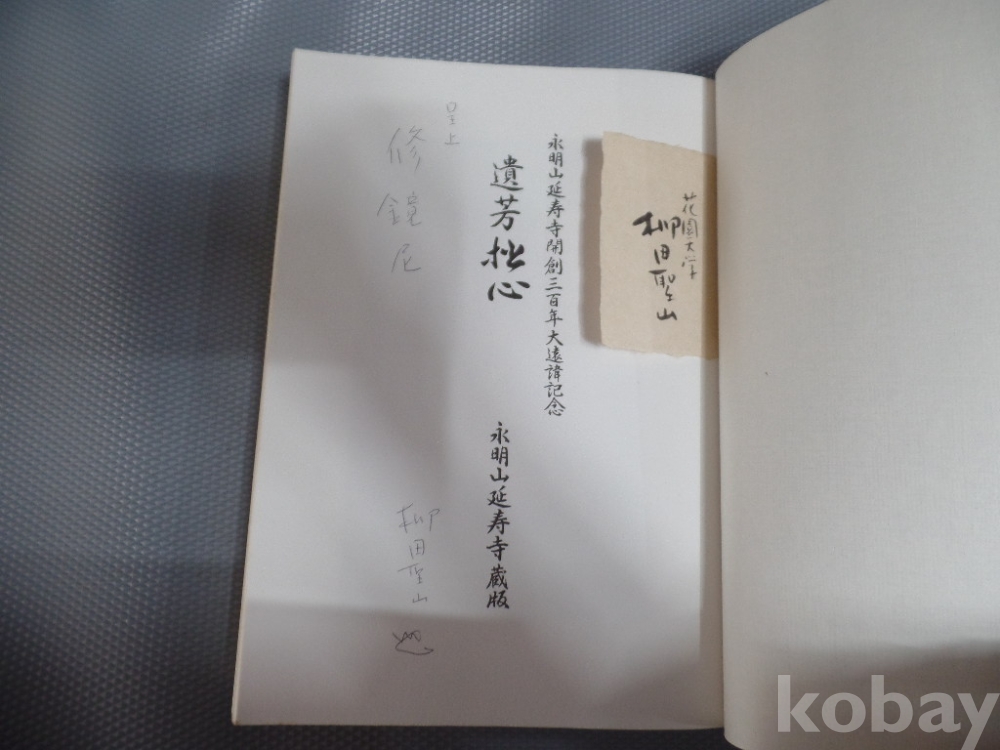 花園大学
柳田聖山
永明山延寿寺開創三百年大遠諱記念
遺芳拙心
永明山延寿寺蔵版
呈上
修鏡尼
柳田聖山
kobay